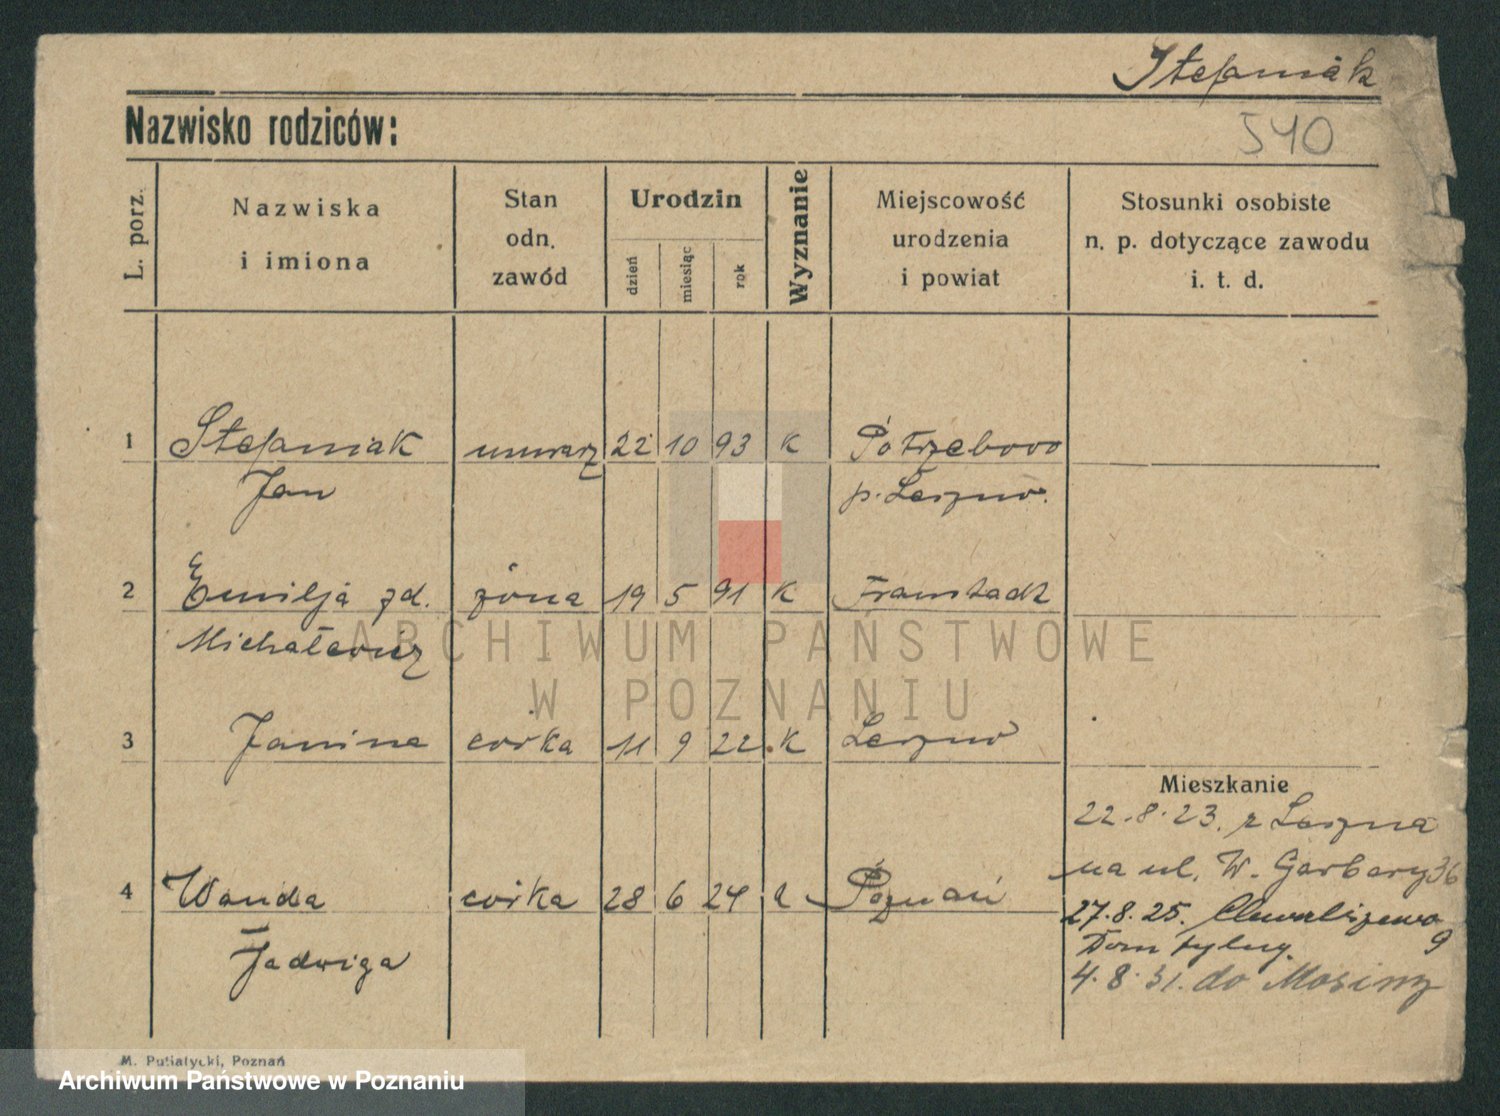 Stefaniak
Nazwisko rodziców:
540
L. porz.
Nazwiska
i imiona
Stan
odn.
zawód
Urodzin
dzień
miesiąc
rok
Wyznanie
Miejscowość
urodzenia
i powiat
Stosunki osobiste
n. p. dotyczące zawodu
i. t. d.
1 Stefaniak 22 10 93 K Potrzebowo
Jan p. Leszno.
2 Emilja zd. żona 19 5 91 K Fraustadt
Michałewicz
3 Janina córka 11 9 22 K Leszno
Mieszkanie
22.8.23. z Leszna
na ul. W. Garbary 36
4 Wanda córka 28 6 24 Poznań
27.8.25. Chwaliszewo 9
Dom tylny.
Jadwiga
4.8.31. do Mosiny
M. Putiatycki, Poznań
ARCHIWUM PAŃSTWOWE
W POZNANIU
Archiwum Państwowe w Poznaniu